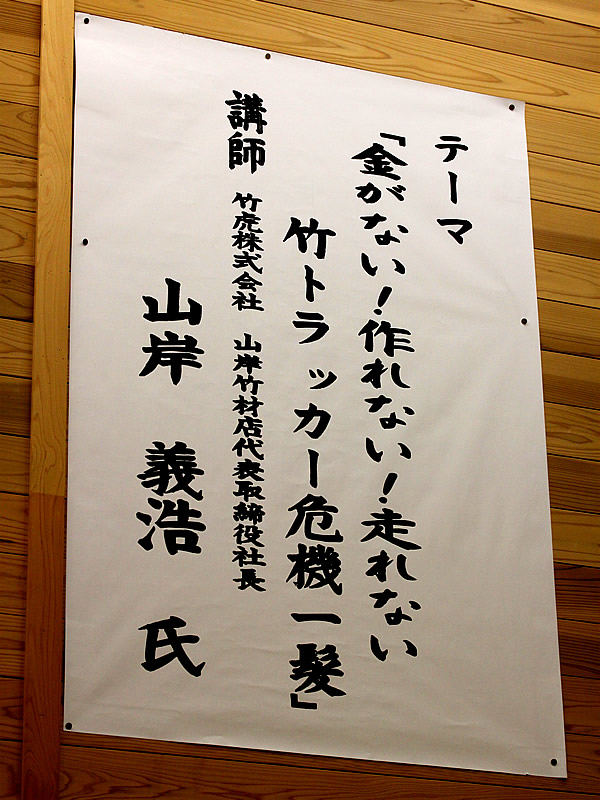 テーマ
「金がない！作れない！走れない
竹トラッカー危機一髪」
講師　竹虎株式会社　山岸竹材店代表取締役社長
山岸　義浩　氏